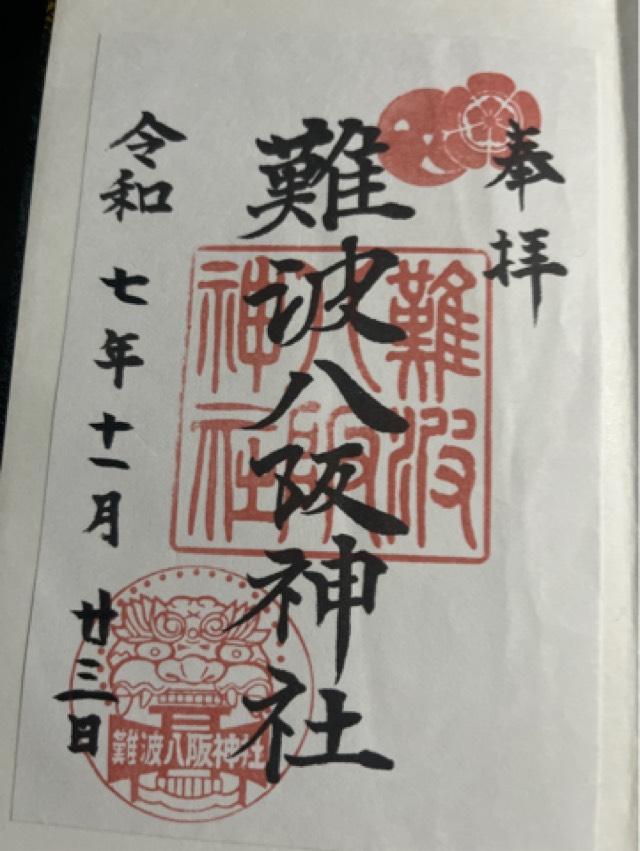 奉拝
難波八阪神社
難波
八阪
神社
令和七年十一月廿三日
難波八阪神社